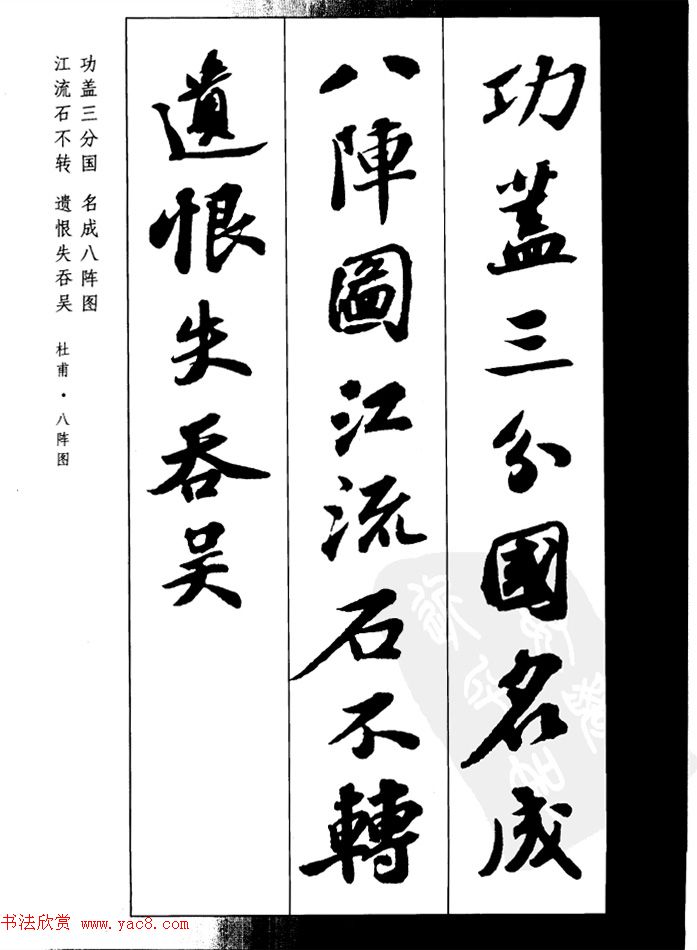 功蓋三分國名成
八陣圖江流石不轉
遺恨失吞吴
功盖三分国 名成八阵图
江流石不转 遗恨失吞吴 杜甫·八阵图
书法欣赏 www.yac8.com